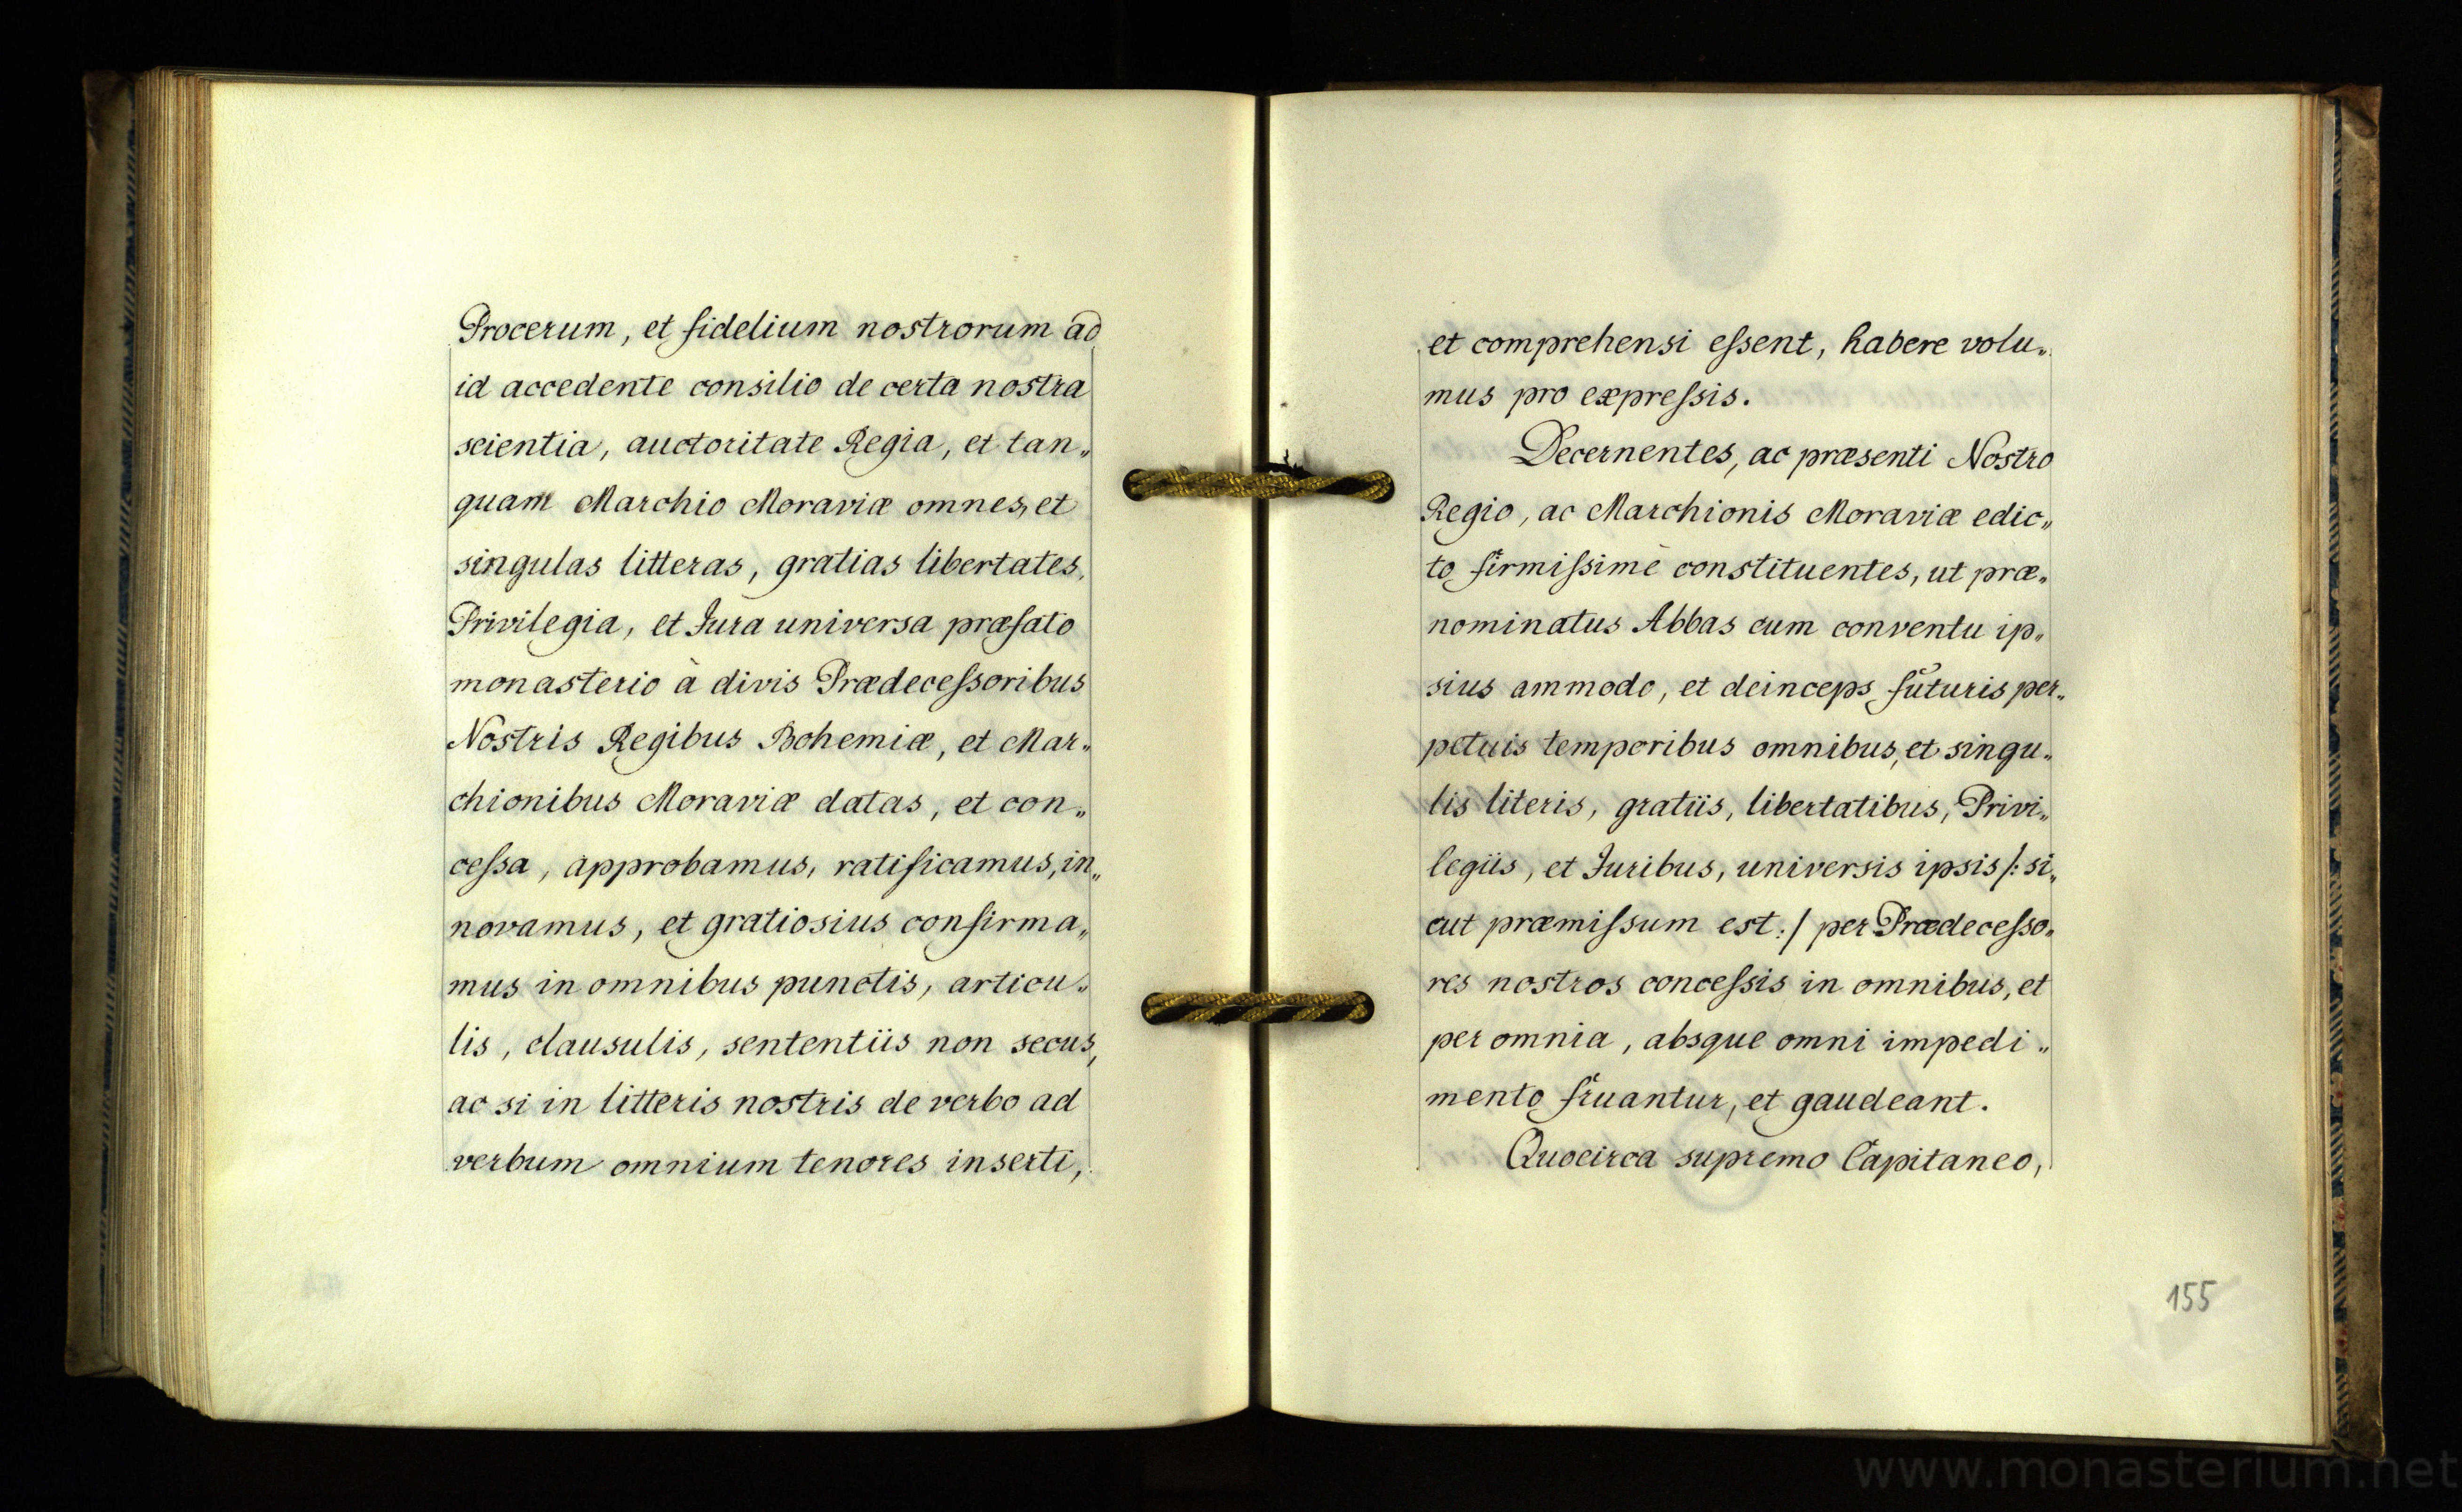 Procerum, et fidelium nostrorum ad
id accedente consilio de certa nostra
scientia, auctoritate Regia, et tan„
quam Marchio Moraviæ omnes, et
singulas litteras, gratias libertates,
Privilegia, et Jura universa præfato
monasterio à divis Prædeceſsoribus
Nostris Regibus Bohemiæ, et Mar„
chionibus Moraviæ datas, et con„
ceſsa, approbamus, ratificamus, in„
novamus, et gratiosius confirma„
mus in omnibus punctis, articu„
lis, clausulis, sententiis non secus,
ac si in litteris nostris de verbo ad
verbum omnium tenores inserti,
et comprehensi eſsent, habere volu„
mus pro expreſsis.
Decernentes, ac præsenti Nostro
Regio, ac Marchionis Moraviæ edic„
to firmiſsimè constituentes, ut præ„
nominatus Abbas cum conventu ip„
sius ammodo, et deinceps futuris per„
petuis temporibus omnibus, et singu„
lis literis, gratiis, libertatibus, Privi„
legiis, et Juribus, universis ipsis /: si„
cut præmiſsum est :/ per Prædeceſso„
res nostros conceſsis in omnibus, et
per omnia, absque omni impedi„
mento fruantur, et gaudeant.
Quocirca supremo Capitaneo,
155
www.monasterium.net